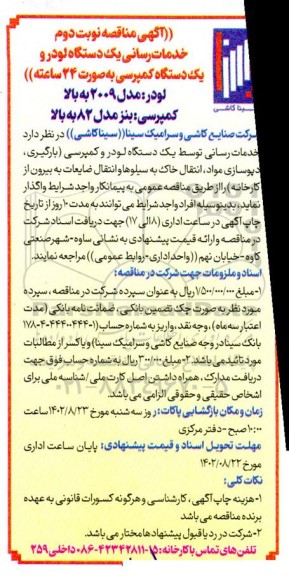 ((آگهی مناقصه نوبت دوم
خدمات رسانی یک دستگاه لودر و
یک دستگاه کمپرسی به صورت ۲۴ ساعته))
لودر: مدل ۲۰۰۹ به بالا
کمپرسی: بنز مدل ۸۲ به بالا
سینا کاشی
شرکت صنایع کاشی و سرامیک سینا ((سیناکاشی)) در نظر دارد
خدمات رسانی توسط یک دستگاه لودر و کمپرسی (بارگیری،
دپوسازی مواد، انتقال خاک به سیلوها و انتقال ضایعات به بیرون از
کارخانه) را از طریق مناقصه عمومی به پیمانکار واجد شرایط واگذار
نماید، بدینوسیله افراد واجد شرایط می توانند به مدت ۱۰ روز از تاریخ
چاپ آگهی در ساعت اداری (۸ الی ۱۷) جهت دریافت اسناد شرکت
در مناقصه و ارائه قیمت پیشنهادی به نشانی ساوه-شهرصنعتی
کاوه-خیابان نهم ((واحد اداری-روابط عمومی)) مراجعه نمایند.
اسناد و ملزومات جهت شرکت در مناقصه:
۱-مبلغ ۷/۵۰۰/۰۰۰/۰۰۰ ریال به عنوان سپرده شرکت در مناقصه، سپرده
مورد نظر به صورت چک تضمین بانکی، ضمانت نامه بانکی (مدت
اعتبار سه ماه)، وجه نقد، واریز به شماره حساب (
بانک سینا در وجه صنایع کاشی و سرامیک سینا) و یا کسر از مطالبات
مورد تائید می باشد. ۲-مبلغ ۳۰۰/۰۰۰ ریال به شماره حساب فوق جهت
دریافت مدارک، همراه داشتن اصل کارت ملی/شناسه ملی برای
اشخاص حقیقی و حقوقی الزامی می باشد.
زمان و مکان بازگشایی پاکات: روز سه شنبه مورخ ۱۴۰۲/۸/۲۳ ساعت
۱۰:۰۰ صبح-دفتر مرکزی
مهلت تحویل اسناد و قیمت پیشنهادی: پایان ساعت اداری
مورخ ۱۴۰۲/۰۸/۲۲
نکات کلی:
۱-هزینه چاپ آگهی، کارشناسی و هرگونه کسورات قانونی به عهده
برنده مناقصه می باشد
۲-شرکت در رد یا قبول پیشنهادها مختار می باشد.
تلفن های تماس با کارخانه: ۱۵-۰۸۶-۴۲۳۴۲۸۱۱ داخلی ۲۵۹